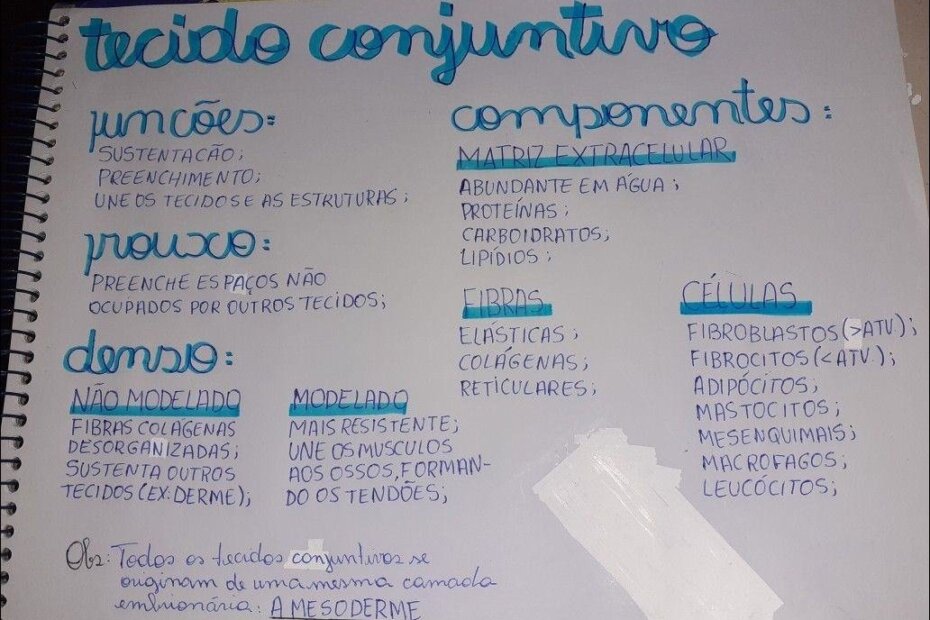 tecido conjuntivo
funcões:
SUSTENTACÃO;
PREENCHIMENTO;
UNE OS TECIDOS E AS ESTRUTURAS;
frouxo:
PREENCHE ESPAÇOS NÃO
OCUPADOS POR OUTROS TECIDOS;
denso:
NÃO MODELADO
FIBRAS COLAGENAS
DESORGANIZADAS;
SUSTENTA OUTROS
TECIDOS (EX: DERME);
MODELADO
MAIS RESISTENTE;
UNE OS MUSCULOS
AOS OSSOS, FORMAN-
DO OS TENDÕES;
componentes:
MATRIZ EXTRACELULAR
ABUNDANTE EM ÁGUA;
PROTEÍNAS;
CARBOIDRATOS;
LIPÍDIOS;
FIBRAS
ELÁSTICAS;
COLÁGENAS;
RETICULARES;
CÉLULAS
FIBROBLASTOS (>ATV.);
FIBROCITOS (<ATV.);
ADIPÓCITOS;
MASTOCITOS;
MESENQUIMAIS;
MACROFAGOS;
LEUCÓCITOS;
Obs: Todos os tecidos conjuntivos se
originam de uma mesma camada
embrionária: A MESODERME